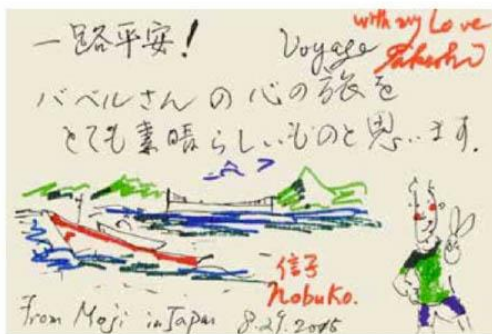 一路平安!
Voyage
with my Love
Takeshi
バベルさんの心の旅を
とても素晴らしいものと思います.
信子
Nobuko.
From Moji in Japan 8.29.2015